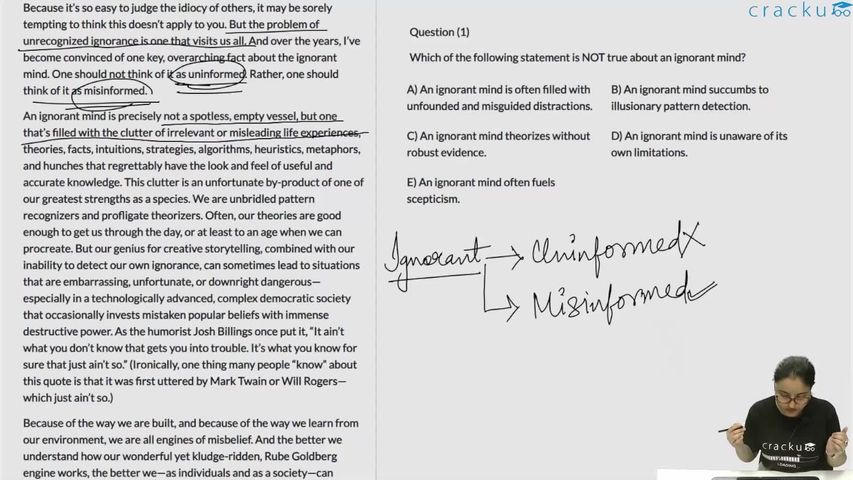 Because it's so easy to judge the idiocy of others, it may be sorely
tempting to think this doesn't apply to you. But the problem of
unrecognized ignorance is one that visits us all. And over the years, I've
become convinced of one key, overarching fact about the ignorant
mind. One should not think of it as uninformed. Rather, one should
think of it as misinformed.
An ignorant mind is precisely not a spotless, empty vessel, but one
that's filled with the clutter of irrelevant or misleading life experiences,
theories, facts, intuitions, strategies, algorithms, heuristics, metaphors,
and hunches that regrettably have the look and feel of useful and
accurate knowledge. This clutter is an unfortunate by-product of one of
our greatest strengths as a species. We are unbridled pattern
recognizers and profligate theorizers. Often, our theories are good
enough to get us through the day, or at least to an age when we can
procreate. But our genius for creative storytelling, combined with our
inability to detect our own ignorance, can sometimes lead to situations
that are embarrassing, unfortunate, or downright dangerous—
especially in a technologically advanced, complex democratic society
that occasionally invests mistaken popular beliefs with immense
destructive power. As the humorist Josh Billings once put it, "It ain't
what you don't know that gets you into trouble. It's what you know for
sure that just ain't so." (Ironically, one thing many people "know" about
this quote is that it was first uttered by Mark Twain or Will Rogers—
which just ain't so.)
Because of the way we are built, and because of the way we learn from
our environment, we are all engines of misbelief. And the better we
understand how our wonderful yet kludge-ridden, Rube Goldberg
engine works, the better we—as individuals and as a society—can
cracku
Question (1)
Which of the following statement is NOT true about an ignorant mind?
A) An ignorant mind is often filled with
unfounded and misguided distractions.
B) An ignorant mind succumbs to
illusionary pattern detection.
C) An ignorant mind theorizes without
robust evidence.
D) An ignorant mind is unaware of its
own limitations.
E) An ignorant mind often fuels
scepticism.
Ignorant → Uninformed X
→ Misinformed ✓
cracku
LOADING...